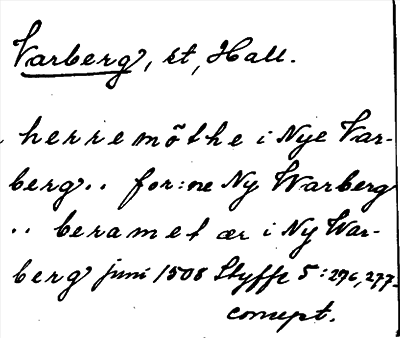 Varberg, st, Hall.
herremöthe i Nye Var-
berg .. for:ne Ny Warberg
.. beramet ær i Ny War-
berg juni 1508 Styffe 5:276, 277.
concept.